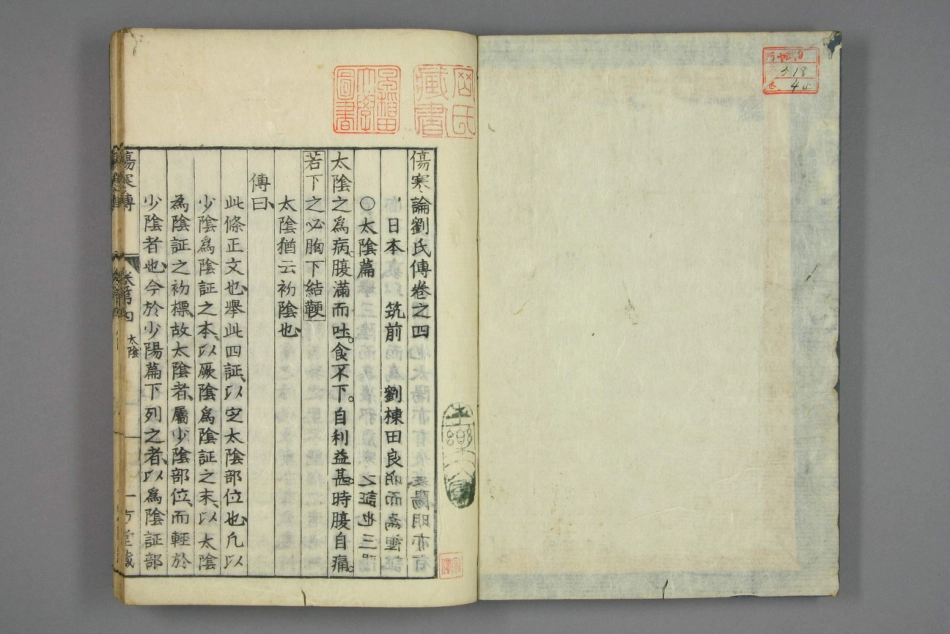 傷寒論劉氏傳卷之四
日本 筑前 劉棟田良
○太陰篇
太陰之爲病。腹滿而吐。食不下。自利益甚。時腹自痛。
若下之。必胸下結鞕
太陰猶云初陰也
傳曰
此條正文也、擧此四証、以定太陰部位也、凡以
少陰爲陰証之本、以厥陰爲陰証之末、以太陰
為陰証之初標、故太陰者、屬少陰部位、而輕於
少陰者也、今於少陽篇下列之者、以爲陰証部
傷寒傳
卷第四
太陰
一方堂藏
藏書
圖書